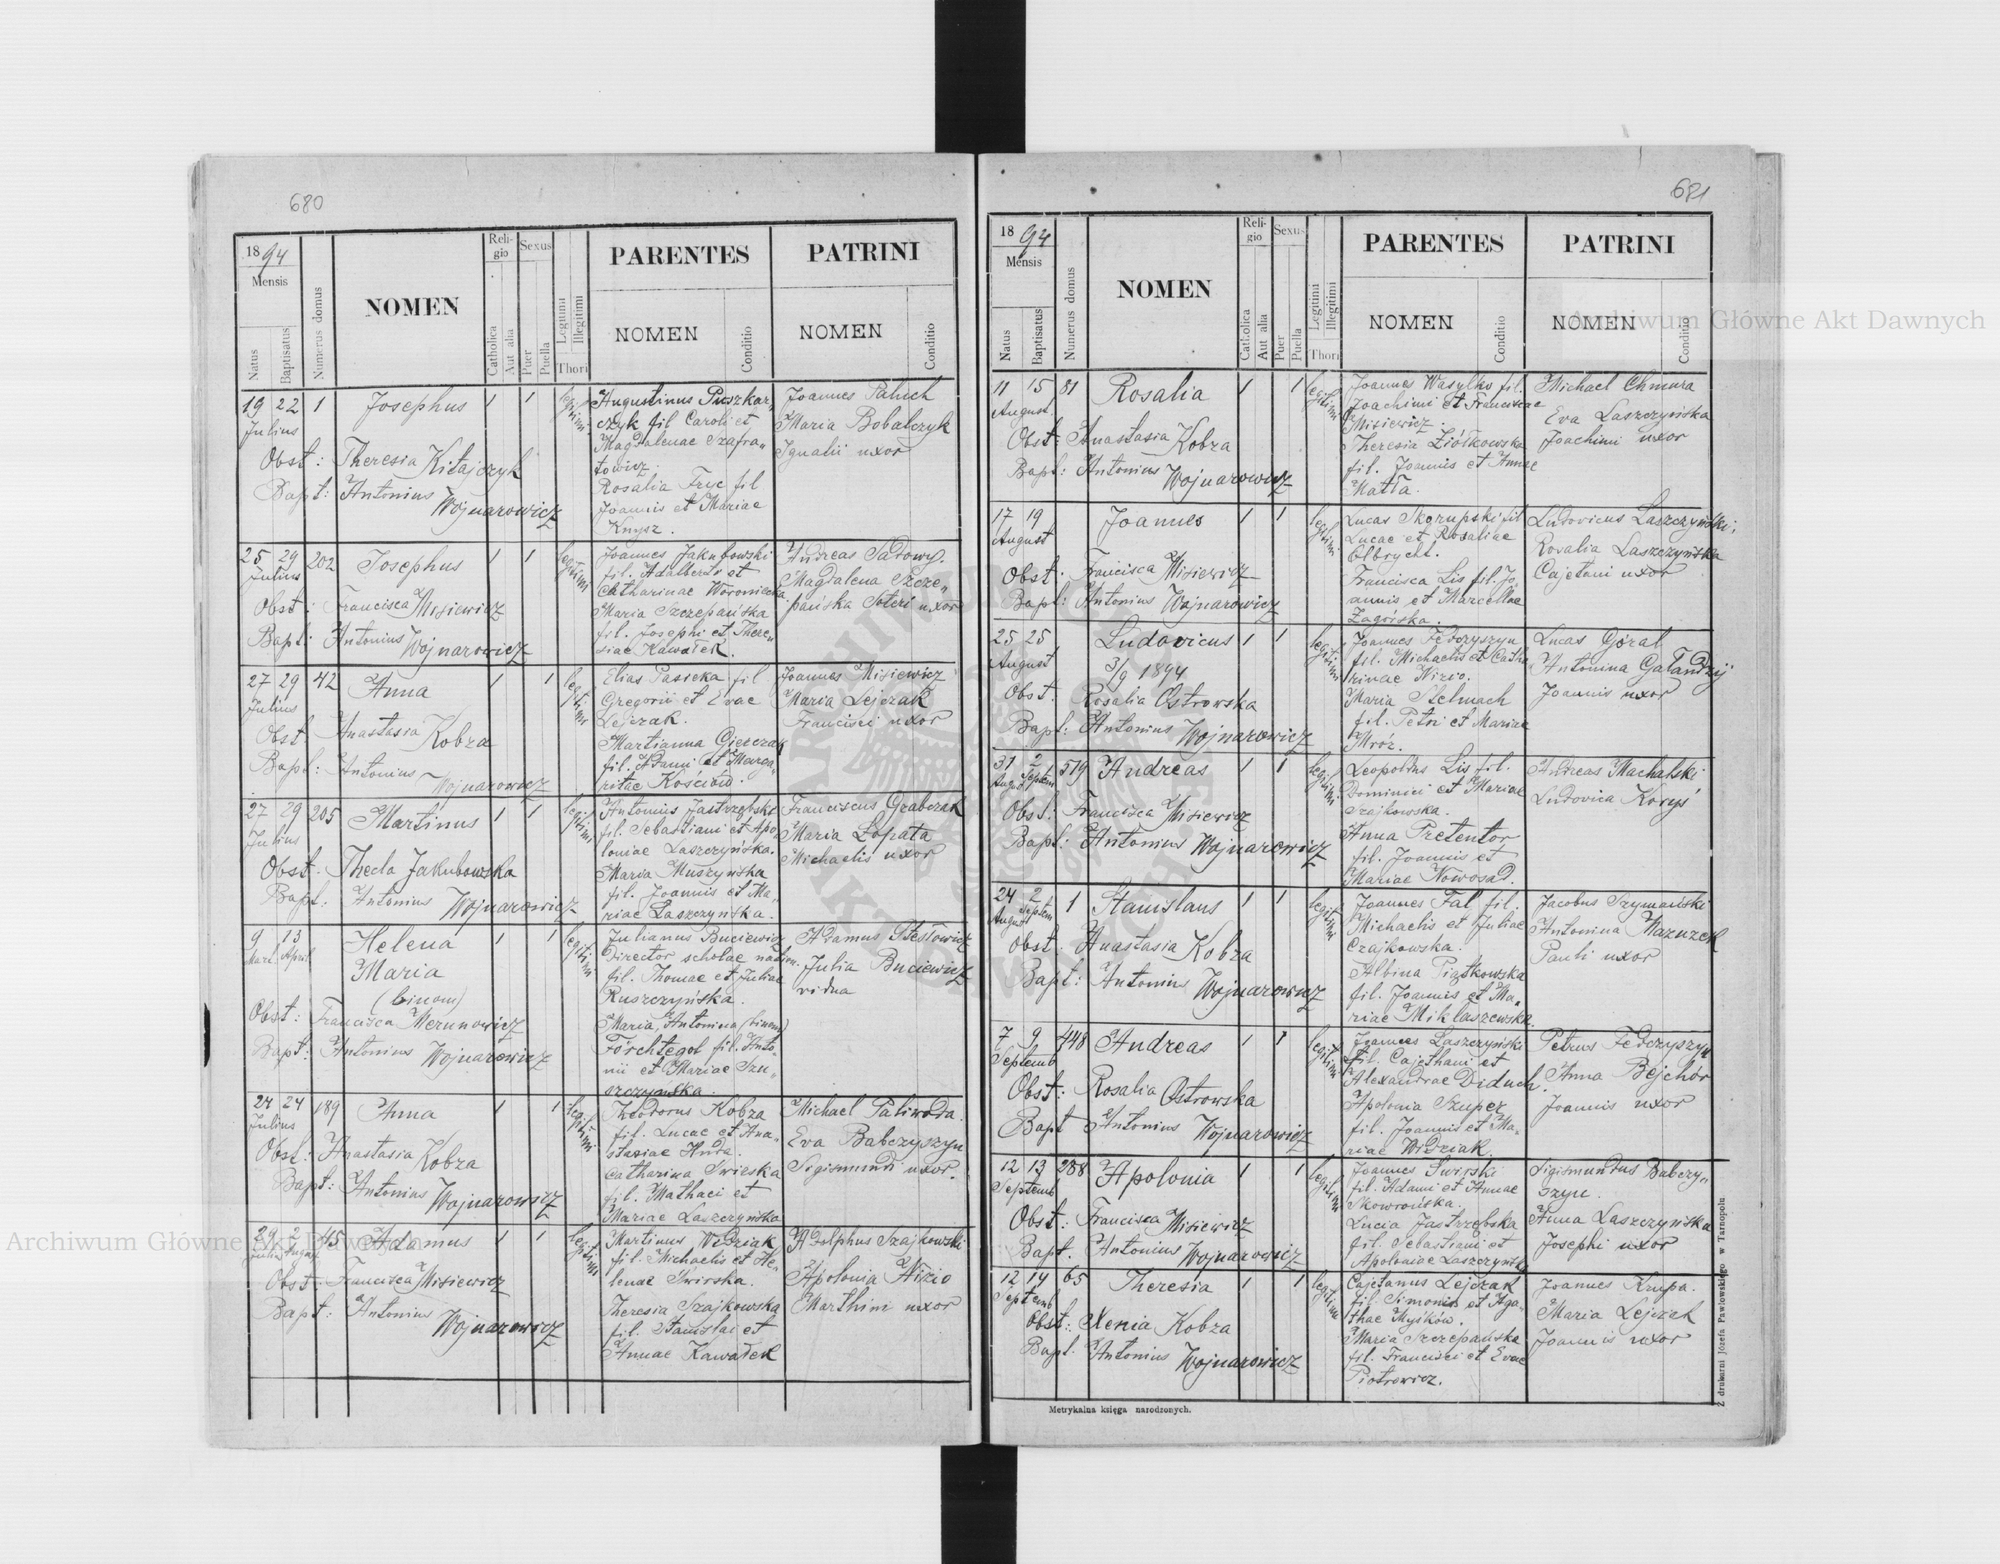 680
18 94
Mensis
Natus
Baptisatus
Numerus domus
NOMEN
Religio
Catholica
Aut alia
Sexus
Puer
Puella
Legitimi
Illegitimi
Thori
PARENTES
NOMEN
Conditio
PATRINI
NOMEN
Conditio
19 22 1 Josephus 1 1 legitimi
Julius
Obst: Theresia Kitajczyk
Bapt: Antonius Wojnarowicz
Augustinus Puszkar„
czyk fil Caroli et
Magdalenae Szafra„
towicz.
Rosalia Fryc fil
Joannis et Mariae
Knysz.
Joannes Paluch
Maria Bobalczyk
Ignatii uxor
25 29 202 Josephus 1 1 legitimi
Julius
Obst: Francisca Misiewicz
Bapt: Antonius Wojnarowicz
Joannes Jakubowski
fil. Adalberti et
Catharinae Woroniecka.
Maria Szczepańska
fil. Josephi et There„
siae Kawałek.
Andreas Sadowy.
Magdalena Szcze„
pańska Soteri uxor
27 29 42 Anna 1 1 legitimi
Julius
Obst. Anastasia Kobza
Bapt: Antonius Wojnarowicz
Elias Pasieka fil
Gregorii et Evae
Lejczak.
Martianna Gierczak
fil. Adami et Marga„
ritae Kościów
Joannes Misiewicz
Maria Lejczak
Francisci uxor
27 29 205 Martinus 1 1 legitimi
Julius
Obst. Thecla Jakubowska
Bapt. Antonius Wojnarowicz
Antonius Jastrzębski
fil. Sebastiani et Apo„
loniae Laszczyńska.
Maria Muszyńska
fil. Joannis et Ma„
riae Laszczyńska.
Franciscus Grabczak
Maria Łopata
Michaelis uxor
9 13 Helena 1 1 legitimi
Mart. April Maria
(binom)
Obst: Francisca Merunowicz
Bapt: Antonius Wojnarowicz
Julianus Buciewicz
Director scholae nation.
fil. Thomae et Juliae
Ruszczyńska.
Maria, Antonina (binom)
Förchtegot fil. Anto„
nii et Mariae Szu„
szczyńska.
Adamus
Julia Buciewicz
vidua
24 24 189 Anna 1 1 legitimi
Julius
Obst: Anastasia Kobza
Bapt: Antonius Wojnarowicz
Theodorus Kobza
fil. Lucae et Ana„
stasiae Huda.
Catharina Swirska
fil. Mathaei et
Mariae Laszczyńska
Michael Paliwoda.
Eva Babczyszyn
Sigismundi uxor.
29 2 45 Adamus 1 1 legitimi
Julius August
Obst: Francisca Misiewicz
Bapt: Antonius Wojnarowicz
Martinus Widziak
fil. Michaelis et He„
lenae Swirska.
Theresia Szajkowska
fil. Stanislai et
Annae Kawałek
Adolphus Szajkowski
Apolonia Nizio
Marthini uxor
681
18 94
Mensis
Natus
Baptisatus
Numerus domus
NOMEN
Religio
Catholica
Aut alia
Sexus
Puer
Puella
Legitimi
Illegitimi
Thori
PARENTES
NOMEN
Conditio
PATRINI
NOMEN
Conditio
11 15 81 Rosalia 1 1 legitimi
August.
Obst: Anastasia Kobza
Bapt: Antonius Wojnarowicz
Joannes Wasylko fil.
Joachimi et Franciscae
Misiewicz.
Theresia Ziółkowska
fil. Joannis et Annae
Matła.
Michael Chmura
Eva Laszczyńska
Joachimi uxor
17 19 Joannes 1 1 legitimi
August
Obst. Francisca Misiewicz
Bapt: Antonius Wojnarowicz
Lucas Skorupski fil
Lucae et Rosaliae
Olbrycht.
Francisca Lis fil. Jo„
annis et Marcellae
Zagórska.
Ludovicus Laszczyński;
Rosalia Laszczyńska
Cajetani uxor
25 25 Ludovicus 1 1 legitimi
August 3/9 1894
Obst. Rosalia Ostrowska
Bapt: Antonius Wojnarowicz
Joannes Fedczyszyn
fil. Michaelis et Catha
rinae Nizio.
Maria Stelmach
fil. Petri et Mariae
Mróz.
Lucas Góral
Antonina Gałandzij
Joannis uxor
31 2 519 Andreas 1 1 legitimi
August Septem
Obst. Francisca Misiewicz
Bapt: Antonius Wojnarowicz
Leopoldus Lis fil.
Dominici et Mariae
Szajkowska.
Anna Pretentor
fil. Joannis et
Mariae Nowosad.
Andreas Machalski
Ludovica
24 2 1 Stanislaus 1 1 legitimi
August Septem
Obst. Anastasia Kobza
Bapt: Antonius Wojnarowicz
Joannes Fal fil.
Michaelis et Juliae
Czajkowska.
Albina Piątkowska
fil. Joannis et Ma„
riae Miklaszewska.
Jacobus Szymański
Antonina Mazurek
Pauli uxor
7 9 448 Andreas 1 1 legitimi
Septemb.
Obst: Rosalia Ostrowska
Bapt Antonius Wojnarowicz
Joannes Laszczyński
fil. Cajethani et
Alexandrae Diduch.
Apolonia Szuper
fil. Joannis et Ma„
riae Widziak.
Petrus Fedczyszyn
Anna Bejchór
Joannis uxor
12 13 288 Apolonia 1 1 legitimi
Septemb
Obst: Francisca Misiewicz
Bapt. Antonius Wojnarowicz
Joannes Swirski
fil. Adami et Annae
Skowrońska.
Lucia Jastrzębska
fil. Sebastiani et
Apoloniae Laszczyńsk
Sigismundus Babczy„
szyn.
Anna Laszczyńska
Josephi uxor
12 14 65 Theresia 1 1 legitimi
Septemb
Obst: Xenia Kobza
Bapt. Antonius Wojnarowicz
Cajetanus Lejczak
fil. Simonis et Aga„
thae Myśków.
Maria Szczepańska
fil. Francisci et Evae
Piotrowicz.
Joannes Krupa.
Maria Lejczak
Joannis uxor
Metrykalna księga narodzonych.
Z drukarni Józefa Pawłowskiego w Tarnopolu
Archiwum Główne Akt Dawnych
Archiwum Główne Akt Dawnych